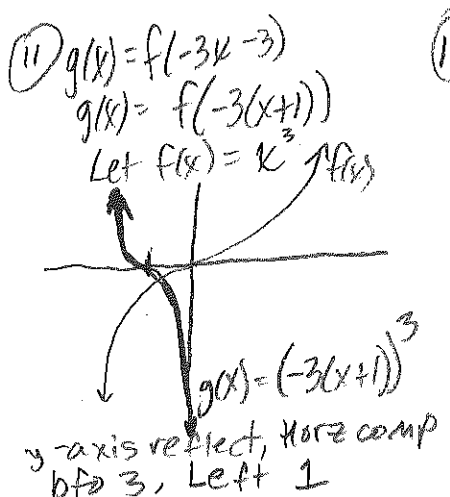 11 g(x) = f(-3x-3)
g(x) = f(-3(x+1))
Let f(x) = x³
f(x)
g(x) = (-3(x+1))³
y-axis reflect, Horz comp
bfo 3, Left 1